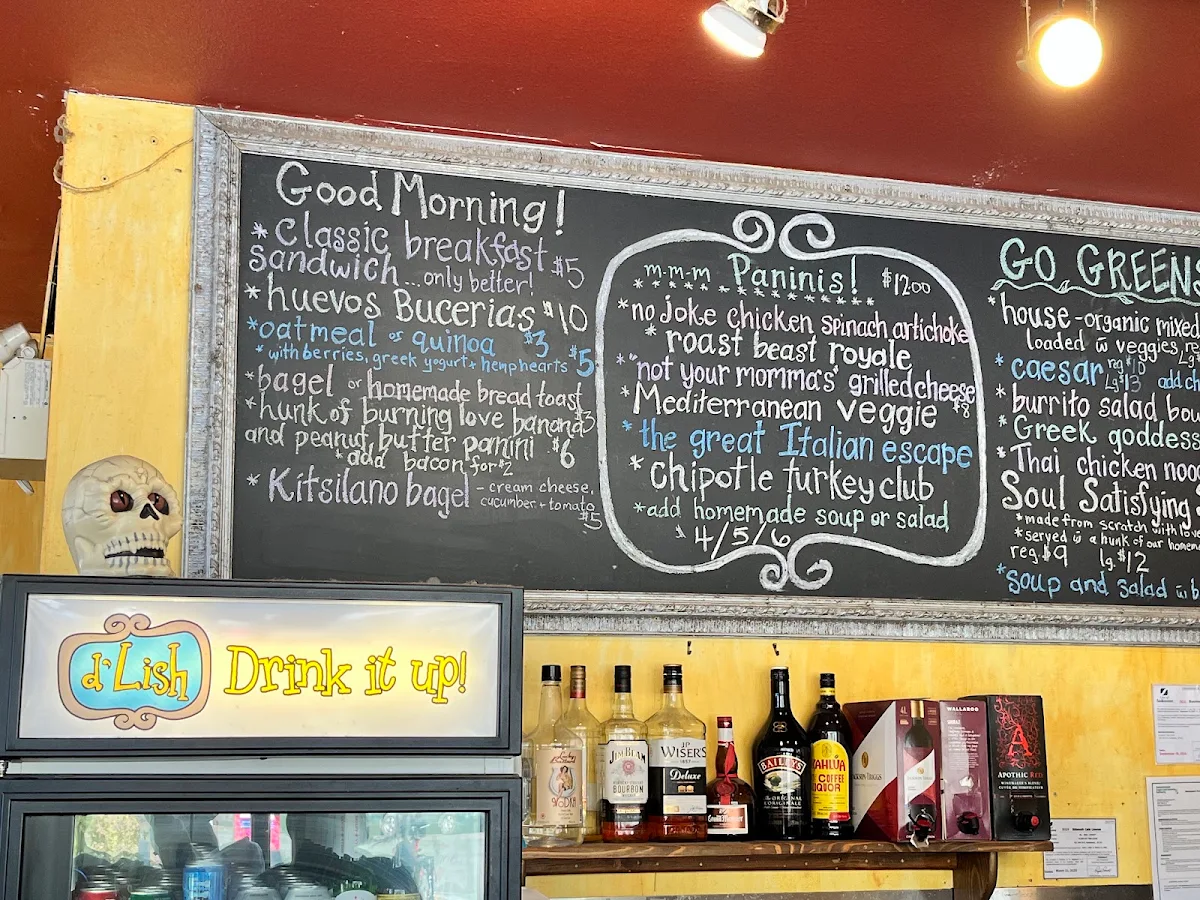 Good Morning!
* classic breakfast
sandwich ...only better! $5
* huevos Bucerias $10
* oatmeal or quinoa $3
* with berries, greek yogurt + hemp hearts $5
* bagel or homemade bread toast $3
* hunk of burning love banana
and peanut butter panini $6
* add bacon for $2
* Kitsilano bagel - cream cheese,
cucumber + tomato
$5
m-m-m Paninis! $1200
* no joke chicken spinach artichoke
* roast beast royale
* "not your momma's" grilled cheese $8
* Mediterranean veggie
* the great Italian escape
* chipotle turkey club
* add homemade soup or salad
$ 4/5/6
GO GREENS
* house - organic mixed
loaded w veggies, reg
* caesar reg $10 Lg $13 add ch
* burrito salad bow
* Greek goddess
* Thai chicken nood
Soul Satisfying
* made from scratch with love
* served w a hunk of our homem
reg. $9 lg. $12
* soup and salad w b
d'Lish Drink it up!
VODKA
JIM BEAM
BOURBON
J.P.
WISER'S
Deluxe
BAILEYS
THE ORIGINAL
KAHLUA
COFFEE
LIQUOR
JACKSON-TRIGGS
WALLAROO
A
APOTHIC RED